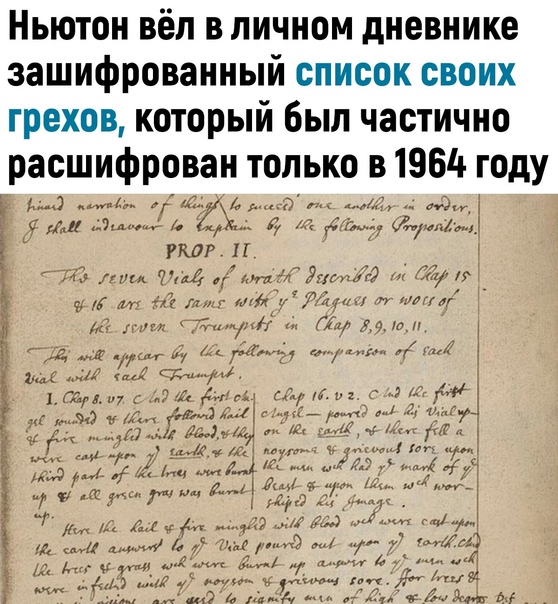 Ньютон вёл в личном дневнике
зашифрованный список своих
грехов, который был частично
расшифрован только в 1964 году
narration of things to succeed one another in order,
I shall indeavour to explain by the following Propositions.
PROP. II.
The seven Vials of wrath described in Chap 15
& 16 are the same with yᵉ Plagues or woes of
the seven Trumpets in Chap 8, 9, 10, 11.
This will appear by the following comparison of each
Vial with each Trumpet.
1. Chap 8. v7. And the first An
gel sounded & there followed hail
& fire mingled with blood, & they
were cast upon yᵉ earth, & the
third part of the trees were burnt
up & all green gras was burnt
up.
Chap 16. v2. And the first
Angel — poured out his Vial up-
on the earth, & there fell a
noysome & grievous sore upon
the men wᶜʰ had yᵉ mark of yᵉ
beast & upon them wᶜʰ wor-
shiped his Image.
Here the hail & fire mingled with blood wᶜʰ were cast upon
the earth answers to yᵉ Vial poured out upon yᵉ earth. And
the trees & grass wᶜʰ were burnt up answer to yᵉ men wᶜʰ
were infected with yᵉ noysom & grievous sore. For trees &
are used to signify men of high & low degree